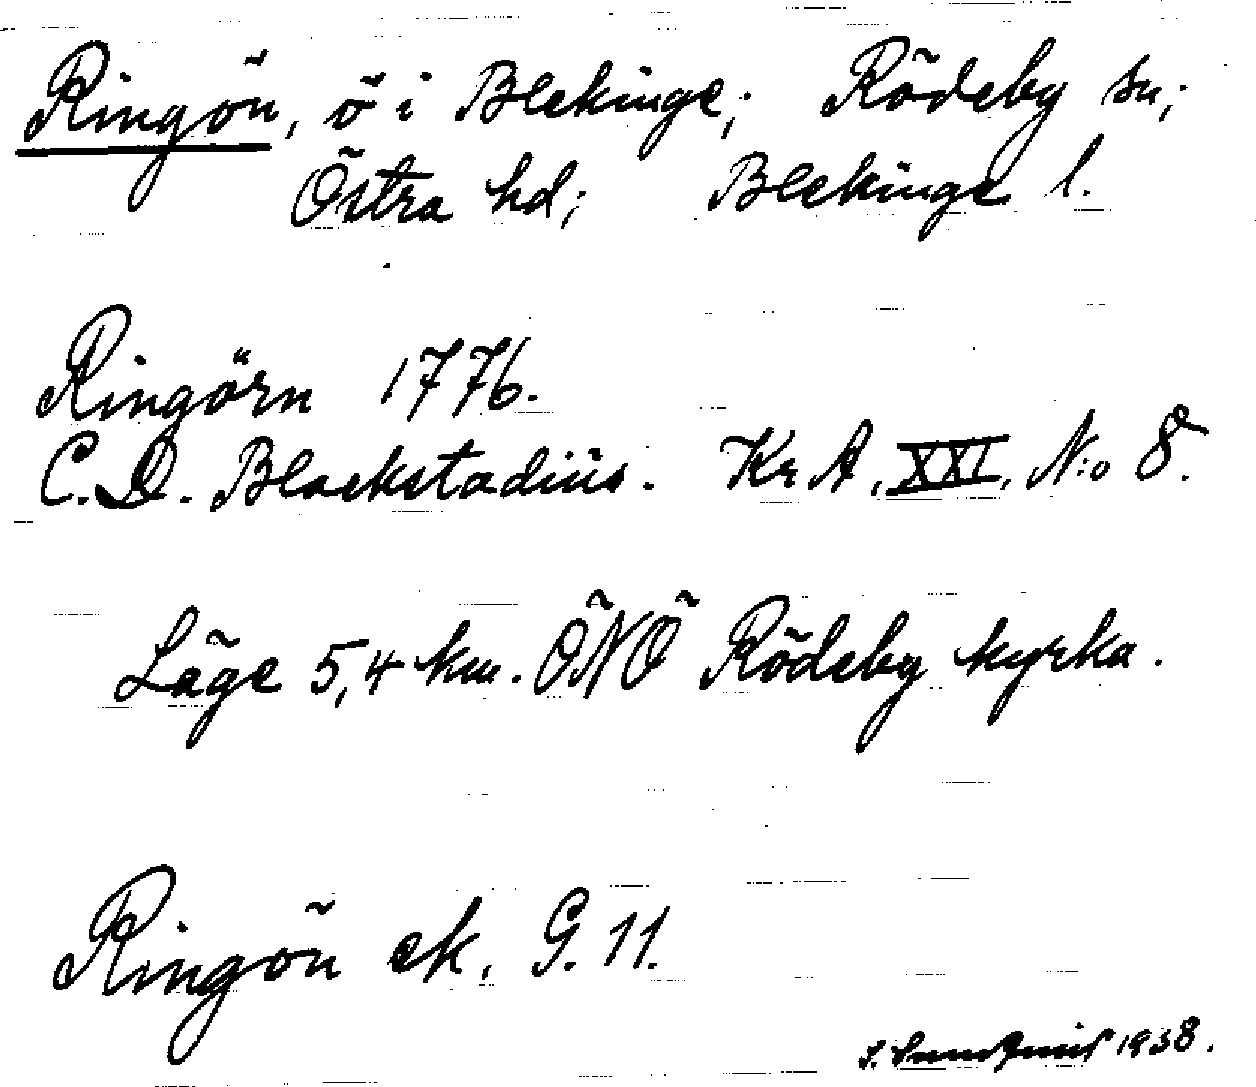 Ringön, ö i Blekinge; Rödeby sn;
Östra hd; Blekinge l.
Ringörn 1776.
C. D. Blackstadius. Kr A, XXI, N:o 8.
Läge 5,4 km. ÖNÖ Rödeby kyrka.
Ringön ek. G. 11.
1938.